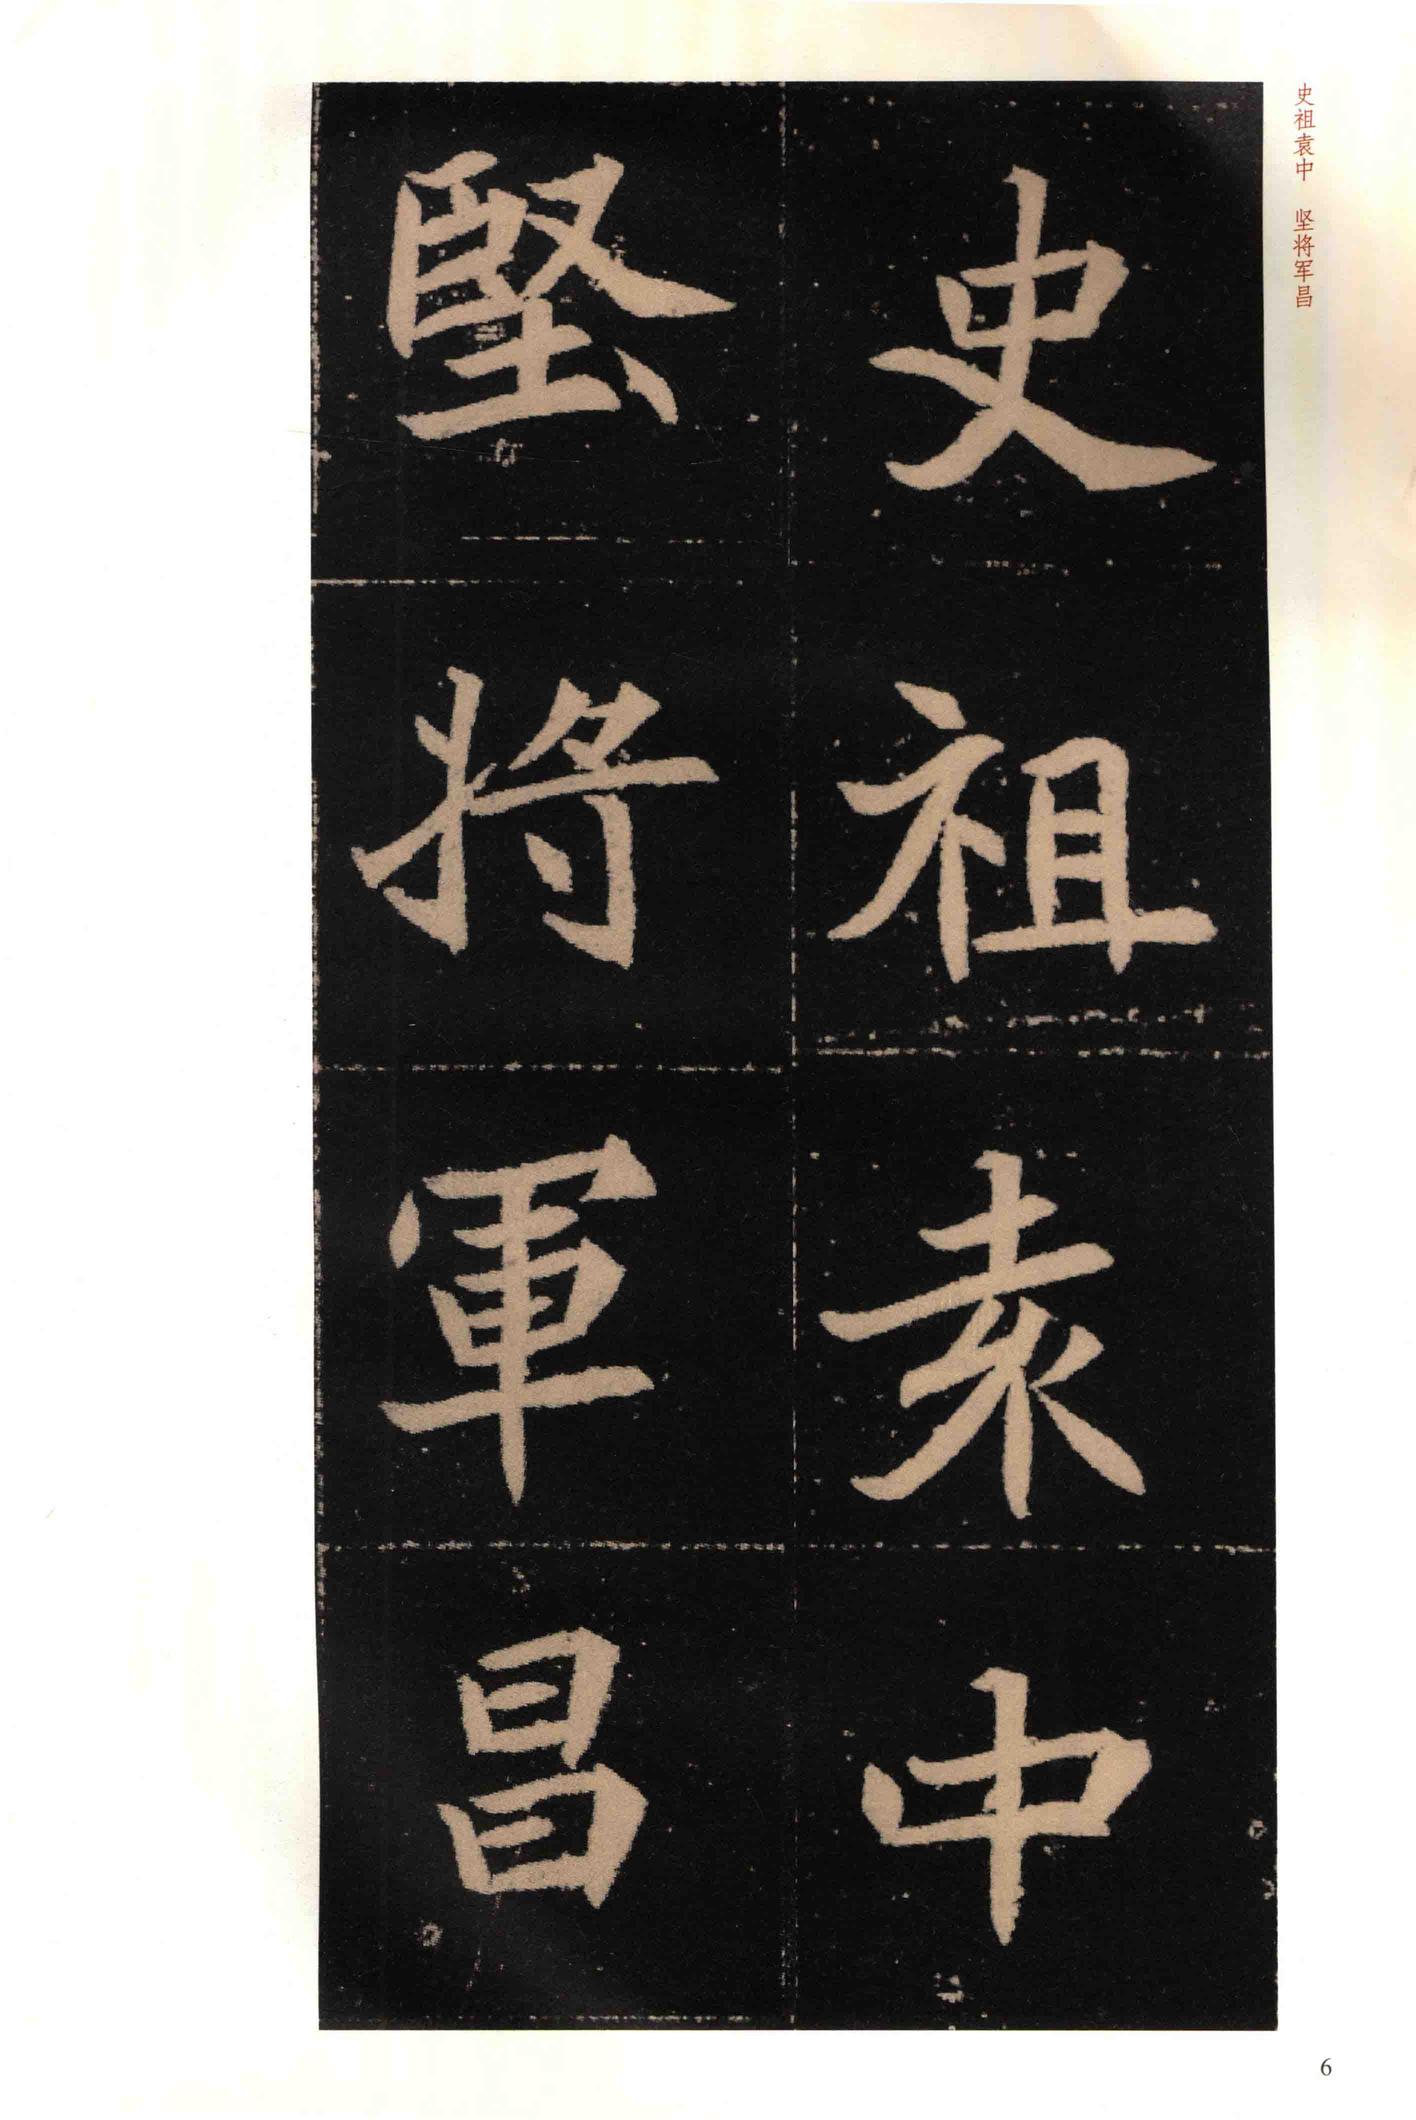 史祖袁中
堅將軍昌
史祖袁中 坚将军昌
6